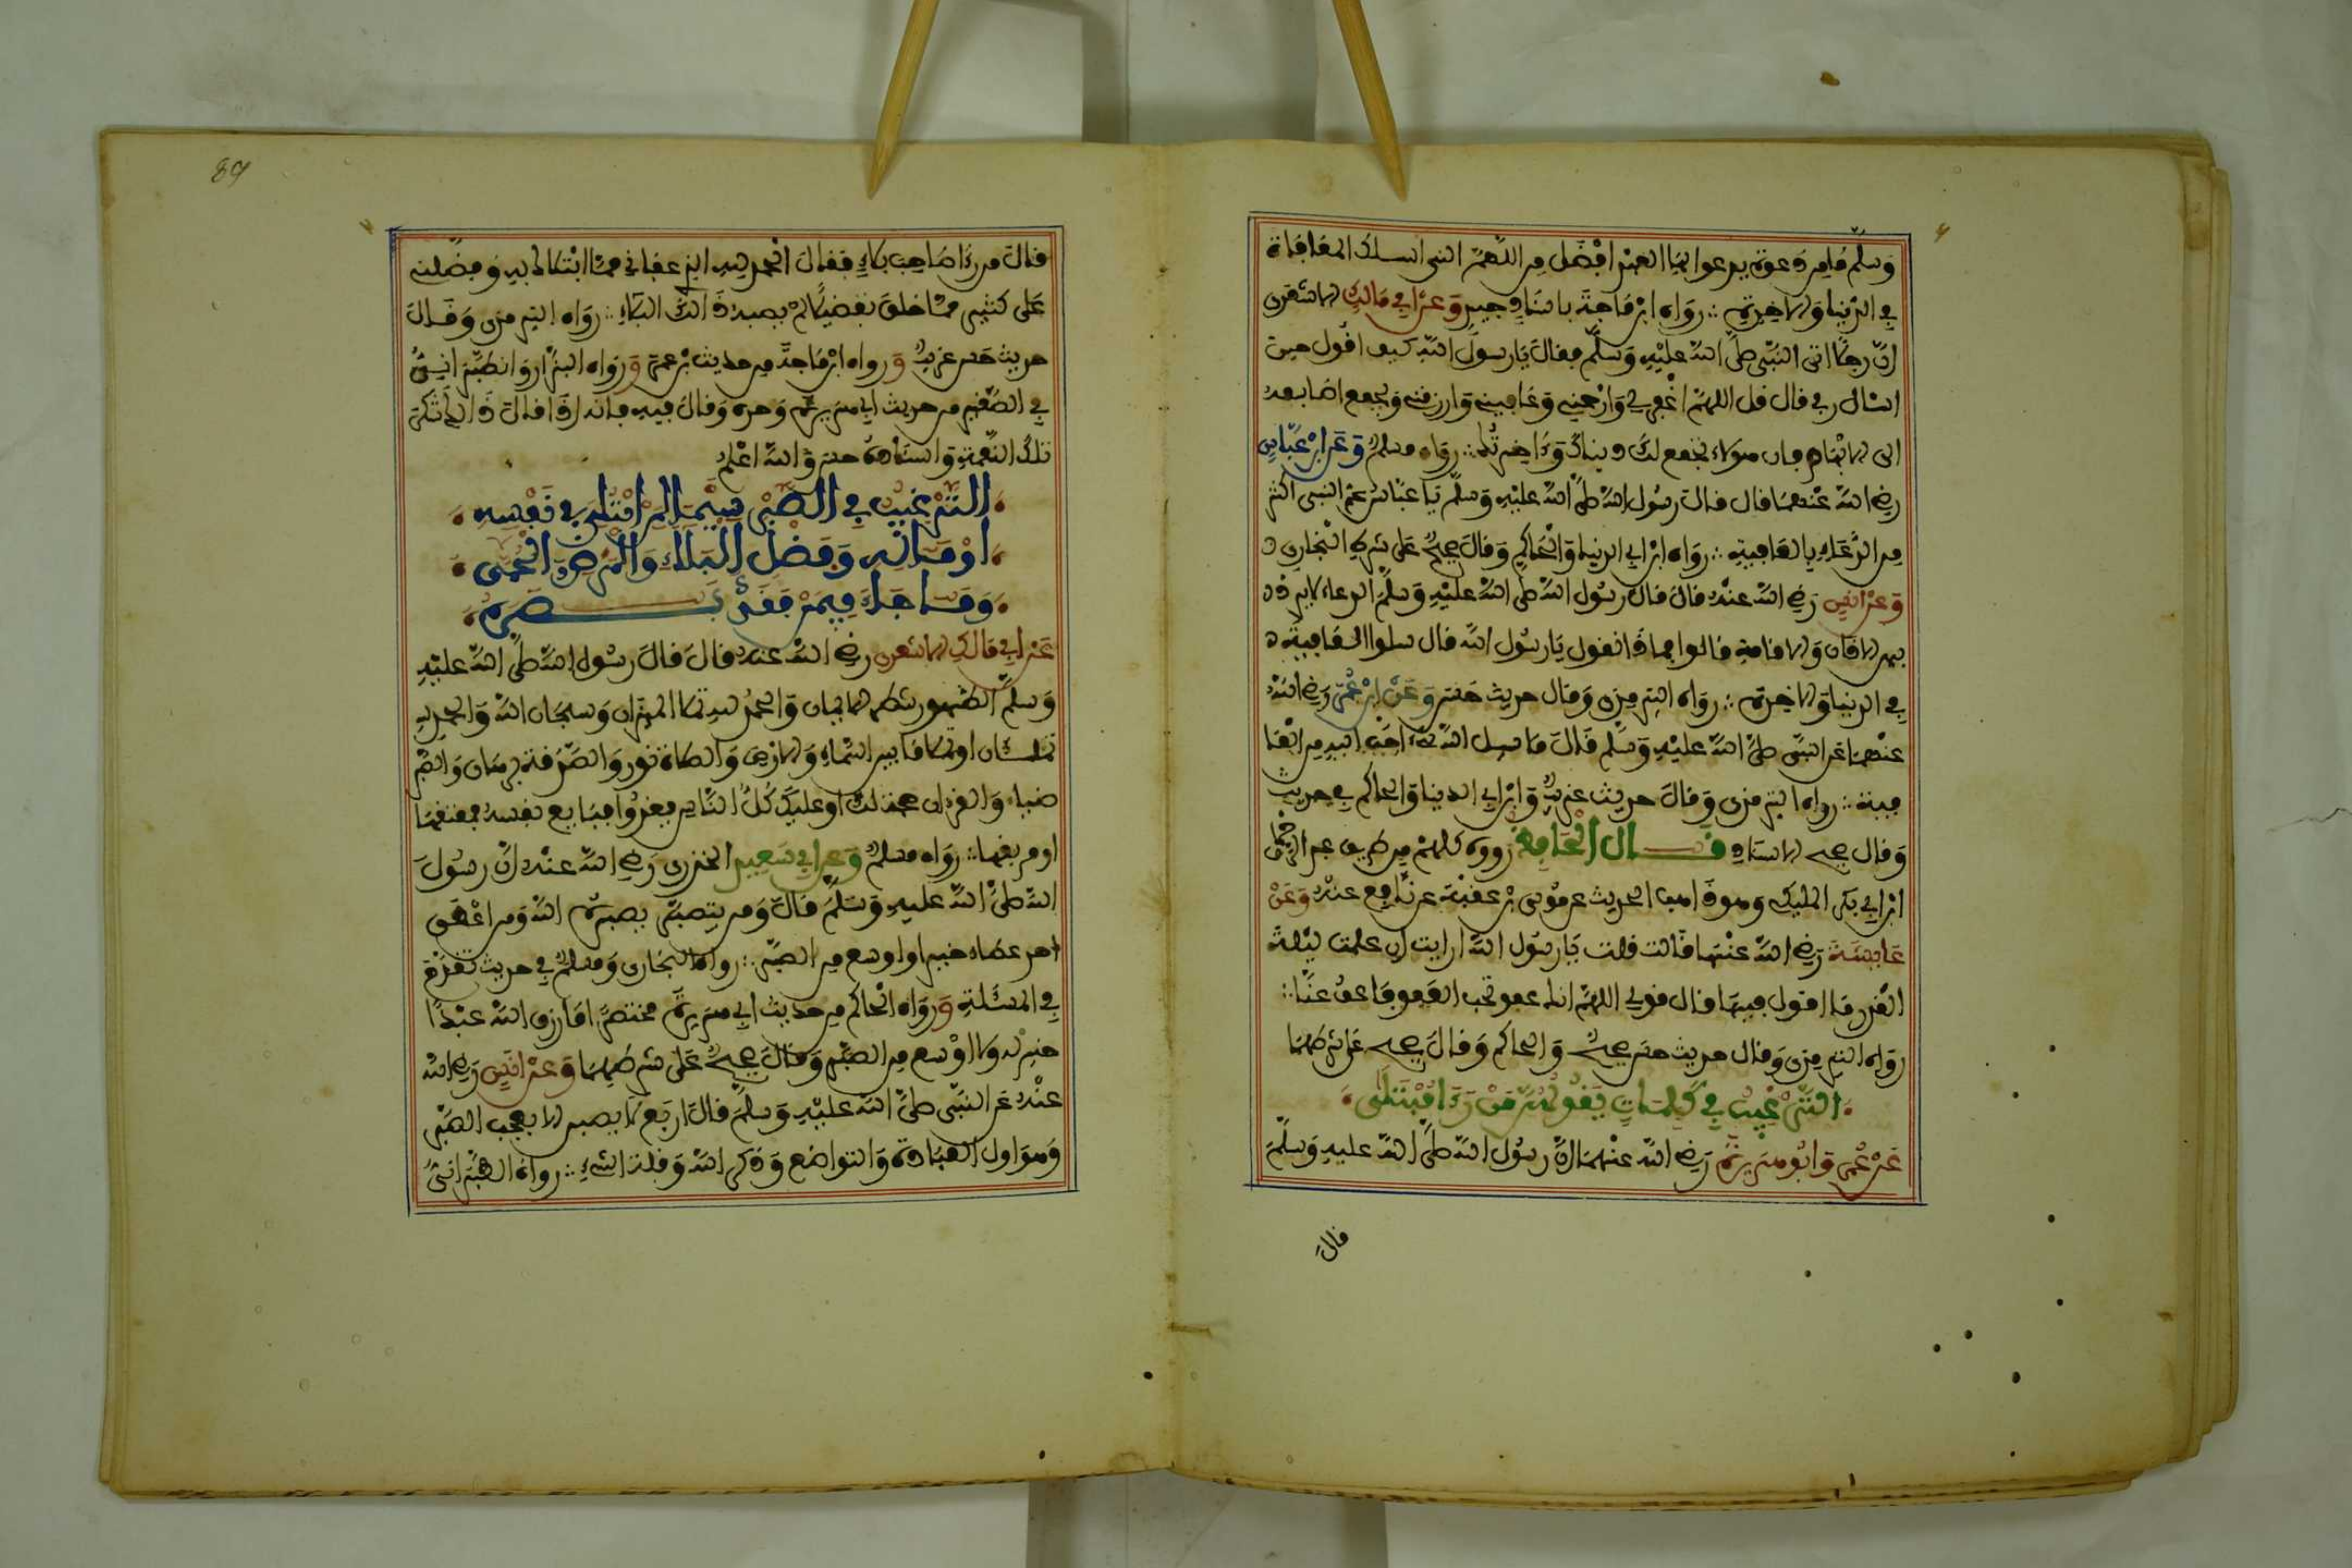 وسلم ما من دعوة يدعوا بها العبد افضل من اللهم انى اسلك المعافاة
في الدنيا والاخرة رواه ابن ماجة باسناد جيد وعن ابي مالك الاشعرى
ان رجلا اتى النبي صلى الله عليه وسلم فقال يا رسول الله كيف اقول حين
اسال ربي قال قل اللهم اغفر لي وارحمني وعافيني وارزقني ويجمع اصابعه
الى الابهام فان هولاء تجمع لك دنياك وءاخرتك رواه مسلم وعن ابن عباس
رضي الله عنهما قال قال رسول الله صلى الله عليه وسلم يا عباس عم النبي اكثر
من الدعاء بالعافية رواه ابن ابي الدنيا والحاكم وقال صحيح على شرط البخارى
وعن انس رضي الله عنه قال قال رسول الله صلى الله عليه وسلم الدعاء لا يرد
بين الاذان والاقامة قالوا فما ذا نقول يا رسول الله قال سلوا الله العافية
في الدنيا والاخرة رواه الترمزى وقال حديث حسن وعن ابن عمر رضي الله
عنهما عن النبي صلى الله عليه وسلم قال ما سيل الله شيء احب اليه من العا
فية رواه الترمزى وقال حديث غريب وابن ابي الدنيا والحاكم في حديث
وقال صحيح الاسناد قال الحافظ رووه كلهم من طريق عبد الرحمن
ابن ابي بكر المليكي وهو ذاهب الحديث عن موسى بن عقبة عن نافع عنه وعن
عايشة رضي الله عنها قالت قلت يا رسول الله ارايت ان علمت ليلة
القدر ما اقول فيها قال قولي اللهم انك عفو تحب العفو فاعف عنا
رواه الترمزى وقال حديث حسن صحيح والحاكم وقال صحيح على شرطهما
الترغيب في كلمات يقولهن من رءا مبتلى
عن عمر وابو هريرة رضي الله عنهما ان رسول الله صلى الله عليه وسلم
قال
89
قال من رءا صاحب بلاء فقال الحمد لله الذي عافاني مما ابتلاك به وفضلني
على كثير مما خلق تفضيلا لم يصبه ذالك البلاء رواه الترمزى وقال
حديث حسن غريب ورواه ابن ماجة من حديث بن عمر ورواه البزار والطبراني
في الصغير من حديث ابي هريرة وحده وقال فيه فانه اذا قال ذالك شكر
تلك النعمة واسناده حسن والله اعلم
الترغيب في الصبر سيما لمن ابتلي في نفسه
او ماله وفضل البلاء والمرض والحمى
وما جاء فيمن فقد بصره
عن ابي مالك الاشعرى رضي الله عنه قال قال رسول الله صلى الله عليه
وسلم الطهور شطر الايمان والحمد لله تملا الميزان وسبحان الله والحمد لله
تملان او تملا ما بين السماء والارض والصلاة نور والصدقة برهان والصبر
ضياء والقرءان حجة لك او عليك كل الناس يغدوا فبايع نفسه فمعتقها
او موبقها رواه مسلم وعن ابي سعيد الخدرى رضي الله عنه ان رسول
الله صلى الله عليه وسلم قال ومن يتصبر يصبره الله وما اعطى
احد عطاء خيرا واوسع من الصبر رواه البخارى ومسلم في حديث تقدم
في المسئلة ورواه الحاكم من حديث ابي هريرة مختصرا ما رزق الله عبدا
خير له ولا اوسع من الصبر وقال صحيح على شرطهما وعن انس رضي الله
عنه عن النبي صلى الله عليه وسلم قال اربع لا يصبر الا بعجب الصبر
وهو اول العبادة والتواضع وذكر الله وقلة الشيء رواه الطبراني